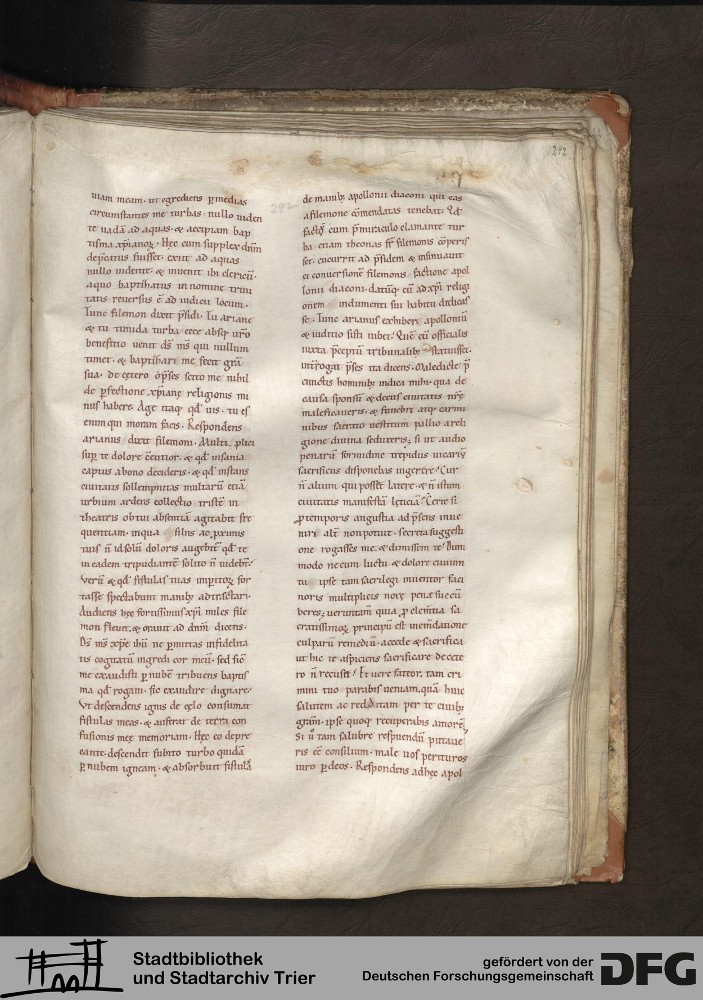 292
292
uiam meam. ut egrediens p medias
circumstantes me turbas. nullo uiden
te uadā ad aquas. & accipiam bap
tisma xp̄ianoꝝ. Hęc cum supplex dn̄m
dep̄catus fuisset. exiit ad aquas
nullo uidente. & inuenit ibi clericū.
a quo baptizatus in nomine trini
tatis reuersus ē ad iudicii locum.
Tunc filemon dixit p̄sidi. Tu ariane
& tu timida turba. ecce absq; ur̄o
beneficio uenit ds̄ ms̄ qui nullum
timet. & baptizari me fecit grā
sua. de cętero op̄ses scito me nihil
de p̄fectione xp̄ianę religionis mi
nus habere. Age itaq; qđ uis. tu es
enim qui moram facis. Respondens
arianus dixit filemoni. Multi plici
sup te dolore c̄eutior. & qđ insania
captus a bono decideris. & qđ instans
ciuitatis sollempnitas multarū etiā
urbium ardens collectio tristē in
theatris ob tui absentiā agitabit fre
quentiam. in qua filius ac p̄ximus
tuis n̄ id solū doloris augebit̄ qđ te
in eadem tripudiantē solito n̄ uidebt̄.
Verū & qđ fistulas tuas imp̄itoꝝ for
tasse spectabunt manibꝫ ad tractari.
Audiens hęc fortissimus xp̄i miles file
mon fleuit. & orauit ad dn̄m dicens.
Ds̄ ms̄ xp̄e ihū ne p̄mittas infidelita
tis cogitatū ingredi cor meū. sed sic̄
me exaudisti p nubē tribuens baptis
ma qđ rogaui. sic exaudire dignare.
Vt descendens ignis de cęlo consumat
fistulas meas. & auferat de terra con
fusionis meę memoriam. Hęc eo depre
cante. descendit subito turbo quidā
p nubem igneam. & absorbuit fistulā
de manibꝫ apollonii diaconi qui eas
a filemone c̄mendatas tenebat. Qđ
factū cum p miraculo clamante tur
ba etiam theonas fr̄ filemonis cōperis
set. cucurrit ad p̄sidem & insinuauit
ei conuersionē filemonis. factione apol
lonii diaconi. datūq; eū ad xp̄i religi
onem indumenti sui habitu dedicas
se. Tunc arianus exhiberi apolloniū
& iuditio sisti iubet. Quē cū officialis
iuxta p̄ceptū tribunalibꝫ statuisset.
int̄rogat p̄ses ita dicens. Maledicte p̄
cunctis hominibꝫ indica mihi. qua de
causa sponsū & decus ciuitatis nr̄ę
maleficaueris. & funebri atq; carmi
nibus sacrito uestrum pallio a reli
gione diuina seduxeris; si ut audio
penarū formidine trepidus uicariū
sacrificiis disponebas ingerere. Cur
n̄ alium qui posset latere. & n̄ istum
ciuitatis manifestā lęticiā? Certe si
p temporis angustia ad p̄sens inue
niri alt̄ non potuit. secreta suggesti
one rogasses me. & dimissem te. Dum
modo ne cum luctu & dolore ciuium
tu ipse tam sacrilegi inuentor faci
noris multiplicis noxę penas succū
beres; ueruntam quia p clem̄tia sa
cratissimoꝝ principū est inem̄datione
culparū remediū. accede & sacrifica
ut hic te aspiciens sacrificare de cęte
ro n̄ recuset. Et uere fateor. tam cri
mini tuo parabis ueniam. quā huic
salutem ac redditam per te ciuibꝫ
gratam. ipse quoq; recuperabis amorē.
Si ū tam salubre respuendū putaue
ris eē consilium. male uos perituros
iuro p deos. Respondens ad hęc apol
Stadtbibliothek
und Stadtarchiv Trier
gefördert von der
Deutschen Forschungsgemeinschaft
DFG